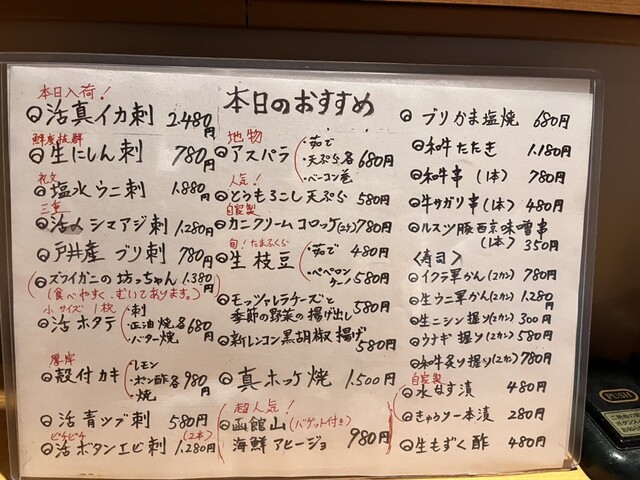 本日のおすすめ
本日入荷!
活真イカ刺 2.480円
鮮度抜群
生にしん刺 780円
塩水ウニ刺 1.880円
三重
活〆シマアジ刺 1.280円
戸井産 ブリ刺 780円
ズワイガニの坊っちゃん 1.380円
(食べやすく、むいてあります。)
小サイズ1枚
活ホタテ ・刺 ・正油焼 ・バター焼 各680円
厚岸
殻付カキ ・レモン ・ポン酢 ・焼 各980円
活青ツブ刺 580円
ピチピチ
活ボタンエビ刺 (2本) 1.280円
地物
アスパラ ・茹で ・天ぷら ・ベーコン巻 各680円
人気!
とうもろこし天ぷら 580円
自家製
カニクリームコロッケ(2ケ) 780円
旬!たまふくら
生枝豆 ・茹で 480円
・ペペロンチーノ 580円
モッツァレラチーズと
季節の野菜の揚げ出し 580円
新レンコン黒胡椒揚げ 580円
真ホッケ焼 1.500円
超人気!
函館山 (バゲット付き)
海鮮アヒージョ 980円
ブリかま塩焼 680円
和牛たたき 1.180円
和牛串(1本) 780円
牛サガリ串(1本) 480円
ルスツ豚西京味噌串
(1本) 350円
〈寿司〉
イクラ軍かん(2カン) 780円
生ウニ軍かん(2カン) 1.280円
生ニシン握り(2カン) 300円
ウナギ握り(2カン) 580円
和牛炙り握り(2カン) 780円
自家製
水なす漬 480円
きゅうり一本漬 280円
生もずく酢 480円
PUSH